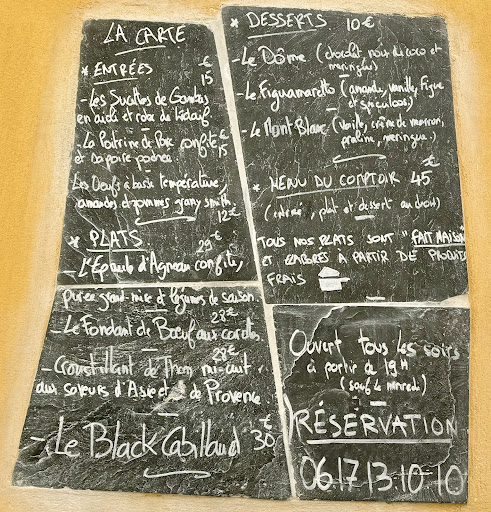 LA CARTE
* ENTRÉES €
15
- Les Sucettes de Gambas
en aïoli et robe de Kadaïf
- La Poitrine de Porc confite €
et sa poire pochée 15
Les Oeufs à basse température,
amandes et pommes grany smith.
12€
* PLATS 29€
- L'Epaule d'Agneau confite,
purée grand-mère et légumes de saison.
28€
- Le Fondant de Boeuf aux carottes
28€
- Croustillant de Thon mi-cuit
aux saveurs d'Asie et de Provence
- Le Black Cabillaud 30€
* DESSERTS 10€
- Le Dôme (chocolat, noix de coco et
meringue)
- Le Figuamaretto (amande, vanille, Figue
et spéculoos)
- Le Mont Blanc (Vanille, crème de marron,
praliné, meringue.)
* MENU DU COMPTOIR 45€
(entrée, plat et dessert au choix)
TOUS NOS PLATS SONT "FAIT MAISON"
ET ELABORES A PARTIR DE PRODUITS
FRAIS
Ouvert tous les soirs
à partir de 19H
(sauf le mercredi)
RÉSERVATION
06.17.13.10.10